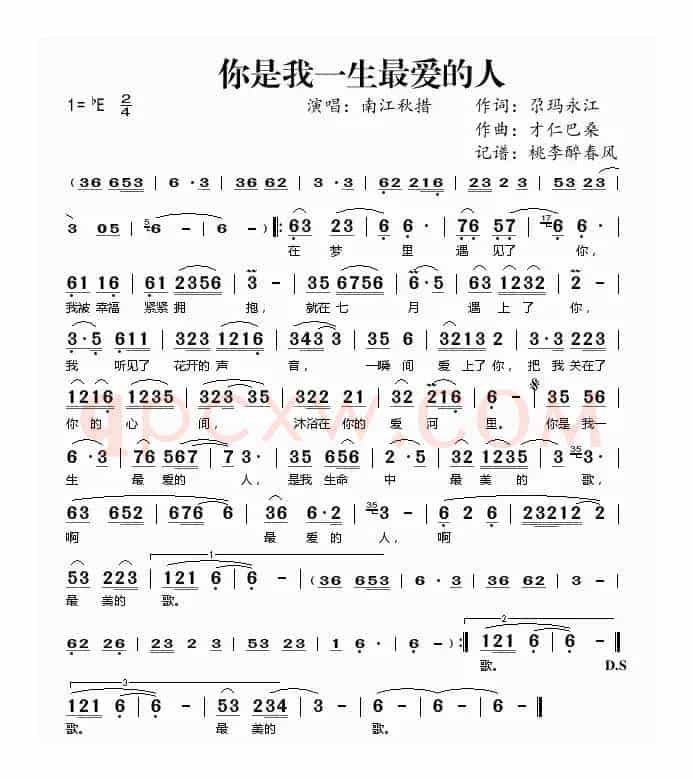 你是我一生最爱的人
1= ♭E 2/4 演唱：南江秋措 作词：尕玛永江
作曲：才仁巴桑
记谱：桃李醉春风
( 36 653 | 6 · 3 | 36 62 | 3 · 3 | 62 216 | 23 2 3 | 53 23 |
3 05 | 5 6 - | 6 - ) |: 63 23 | 6 6 · | 76 57 | 17 6 6 · |
在 梦 里 遇 见了 你，
61 16 | 61 2356 | 3 - | 35 6756 | 6 · 5 | 63 1232 | 2 - |
我被 幸福 紧紧 拥 抱， 就在 七 月 遇 上 了 你，
3 · 5 | 611 | 323 1216 | 343 3 | 35 6 | 3213 2 | 3 · 3 223 |
我 听见了 花开的 声 音， 一瞬 间 爱 上了 你， 把 我 关在了
1216 1235 | 323 35 | 322 21 | 32 216 | 6 - | 35 56 |
你 的 心 间， 沐浴在 你的 爱 河 里。 你是 我一
qpcxw.COM
6 · 3 | 76 567 | 7 3 · | 35 656 | 2 · 5 | 32 1235 | 35 3 · |
生 最 爱的 人， 是我 生命 中 最 美的 歌，
63 652 | 676 6 | 36 6 · 2 | 35 3 - | 6 2 6 | 23212 2 |
啊 最 爱的 人， 啊
1
53 223 | 121 6 | 6 - | ( 36 653 | 6 · 3 | 36 62 | 3 · 3 |
最 美的 歌。
2
62 26 | 23 2 3 | 53 23 | 1 6 · | 6 - ) :| 121 6 | 6 - |
歌。 D.S
3
121 6 | 6 - | 53 234 | 3 - | 6 - | 6 - ‖
歌。 最 美的 歌。